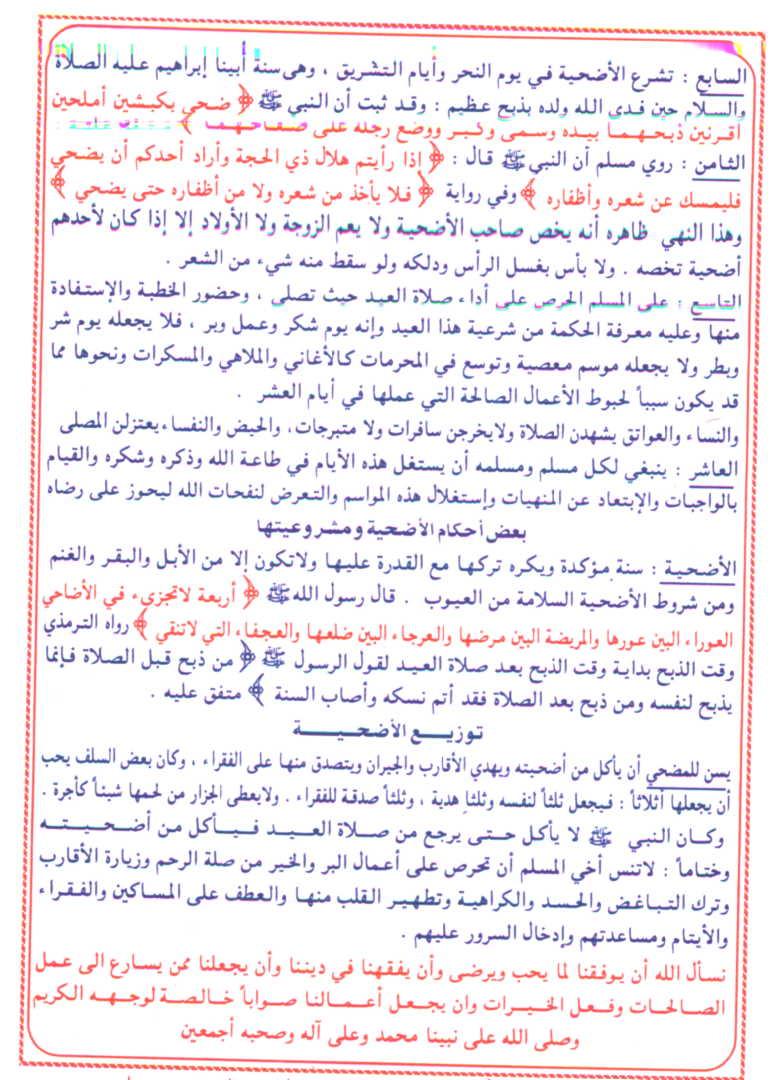 السابع : تشرع الأضحية في يوم النحر وأيام التشريق ، وهى سنة أبينا إبراهيم عليه الصلاة
والسلام حين فدى الله ولده بذبح عظيم : وقد ثبت أن النبي ﷺ ﴿ ضحى بكبشين أملحين
أقرنين ذبحهما بيده وسمى وكبر ووضع رجله على صفاحهما ﴾ متفق عليه :
الثامن : روي مسلم أن النبي ﷺ قال : ﴿ إذا رأيتم هلال ذي الحجة وأراد أحدكم أن يضحي
فليمسك عن شعره وأظفاره ﴾ وفي رواية ﴿ فلا يأخذ من شعره ولا من أظفاره حتى يضحي ﴾
وهذا النهي ظاهره أنه يخص صاحب الأضحية ولا يعم الزوجة ولا الأولاد إلا إذا كان لأحدهم
أضحية تخصه . ولا بأس بغسل الرأس ودلكه ولو سقط منه شيء من الشعر .
التاسع : على المسلم الحرص على أداء صلاة العيد حيث تصلى ، وحضور الخطبة والإستفادة
منها وعليه معرفة الحكمة من شرعية هذا العيد وإنه يوم شكر وعمل وبر ، فلا يجعله يوم شر
وبطر ولا يجعله موسم معصية وتوسع في المحرمات كالأغاني والملاهي والمسكرات ونحوها مما
قد يكون سبباً لحبوط الأعمال الصالحة التي عملها في أيام العشر .
والنساء والعواتق يشهدن الصلاة ولايخرجن سافرات ولا متبرجات، والحيض والنفساء يعتزلن المصلى
العاشر : ينبغي لكل مسلم ومسلمه أن يستغل هذه الأيام في طاعة الله وذكره وشكره والقيام
بالواجبات والإبتعاد عن المنهيات وإستغلال هذه المواسم والتعرض لنفحات الله ليحوز على رضاه
بعض أحكام الأضحية ومشروعيتها
الأضحية : سنة مؤكدة ويكره تركها مع القدرة عليها ولاتكون إلا من الأبل والبقر والغنم
ومن شروط الأضحية السلامة من العيوب . قال رسول الله ﷺ ﴿ أربعة لاتجزيء في الأضاحي
العوراء البين عورها والمريضة البين مرضها والعرجاء البين ضلعها والعجفاء التي لاتنقي ﴾ رواه الترمذي
وقت الذبح بداية وقت الذبح بعد صلاة العيد لقول الرسول ﷺ ﴿ من ذبح قبل الصلاة فإنما
يذبح لنفسه ومن ذبح بعد الصلاة فقد أتم نسكه وأصاب السنة ﴾ متفق عليه .
توزيع الأضحية
يسن للمضحي أن يأكل من أضحيته ويهدي الأقارب والجيران ويتصدق منها على الفقراء ، وكان بعض السلف يحب
أن يجعلها أثلاثاً : فيجعل ثلثاً لنفسه وثلثاً هدية ، وثلثاً صدقة للفقراء . ولايعطى الجزار من لحمها شيئاً كأجرة .
وكان النبي ﷺ لا يأكل حتى يرجع من صلاة العيد فيأكل من أضحيته
وختاماً : لاتنس أخي المسلم أن تحرص على أعمال البر والخير من صلة الرحم وزيارة الأقارب
وترك التباغض والحسد والكراهية وتطهير القلب منها والعطف على المساكين والفقراء
والأيتام ومساعدتهم وإدخال السرور عليهم .
نسأل الله أن يوفقنا لما يحب ويرضى وأن يفقهنا في ديننا وأن يجعلنا ممن يسارع الى عمل
الصالحات وفعل الخيرات وان يجعل أعمالنا صواباً خالصة لوجهه الكريم
وصلى الله على نبينا محمد وعلى آله وصحبه أجمعين